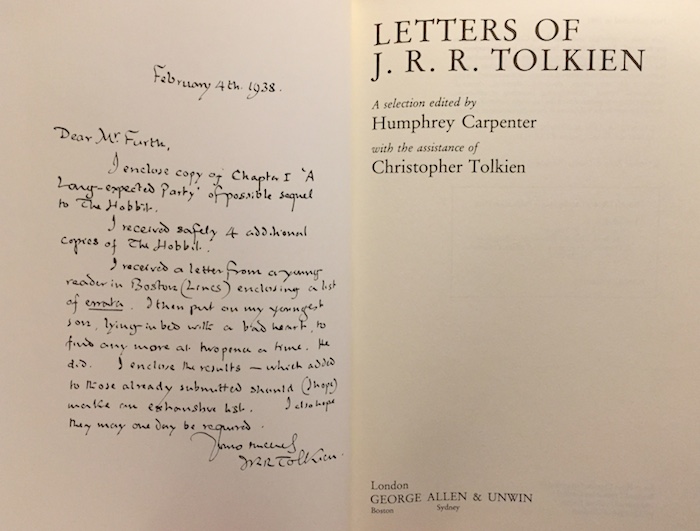 February 4th. 1938.
Dear Mr Furth,
I enclose copy of Chapter I 'A
Long-expected Party' of possible sequel
to The Hobbit.
I received safely 4 additional
copies of The Hobbit.
I received a letter from a young
reader in Boston (Lincs) enclosing a list
of errata. I then put on my youngest
son, lying in bed with a bad heart, to
find any more at twopence a time. He
did. I enclose the results — which added
to those already submitted should (I hope)
make an exhaustive list. I also hope
they may one day be required.
Yours sincerely
JRR Tolkien.
LETTERS OF
J. R. R. TOLKIEN
A selection edited by
Humphrey Carpenter
with the assistance of
Christopher Tolkien
London
GEORGE ALLEN & UNWIN
Boston Sydney